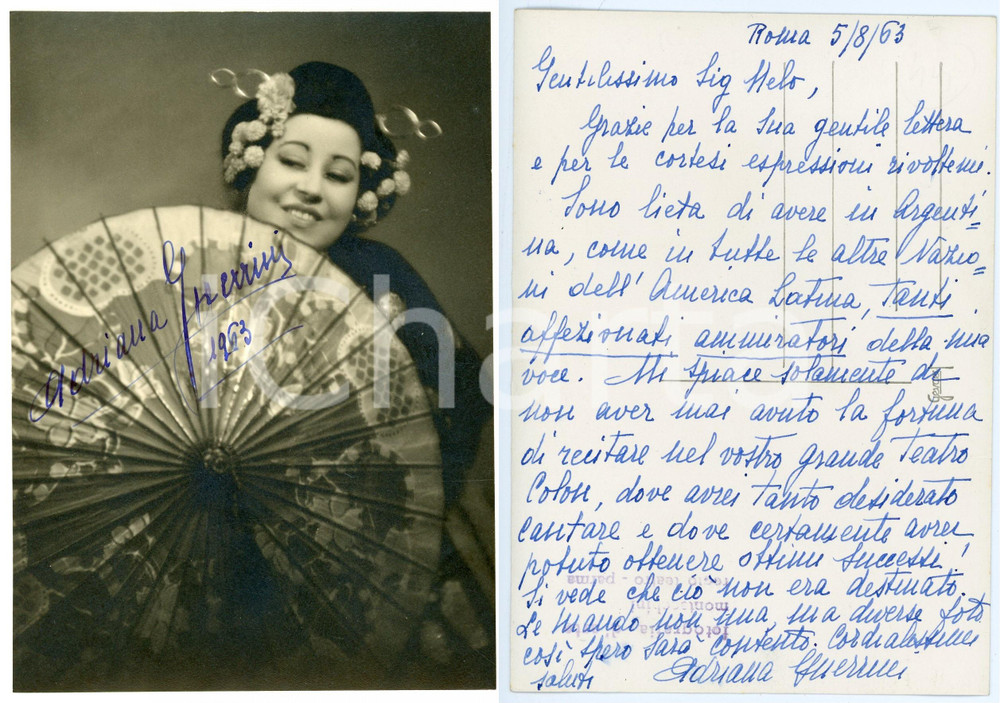 Adriana Guerrini
1963
iCharta
Roma 5/8/63
Gentilissimo Sig Melo,
Grazie per la Sua gentile lettera
e per le cortesi espressioni rivoltemi.
Sono lieta di avere in Argenti=
na, come in tutte le altre Nazio=
ni dell' America Latina, tanti
affezionati ammiratori della mia
voce. Mi spiace solamente di
non aver mai avuto la fortuna
di recitare nel vostro grande Teatro
Colon, dove avrei tanto desiderato
cantare e dove certamente avrei
potuto ottenere ottimi successi!
Si vede che ciò non era destinato.
Le mando non una, ma diverse foto
così spero sarà contento. Cordialissimi
saluti Adriana Guerrini
fotografia
montacchini
regio teatro - parma